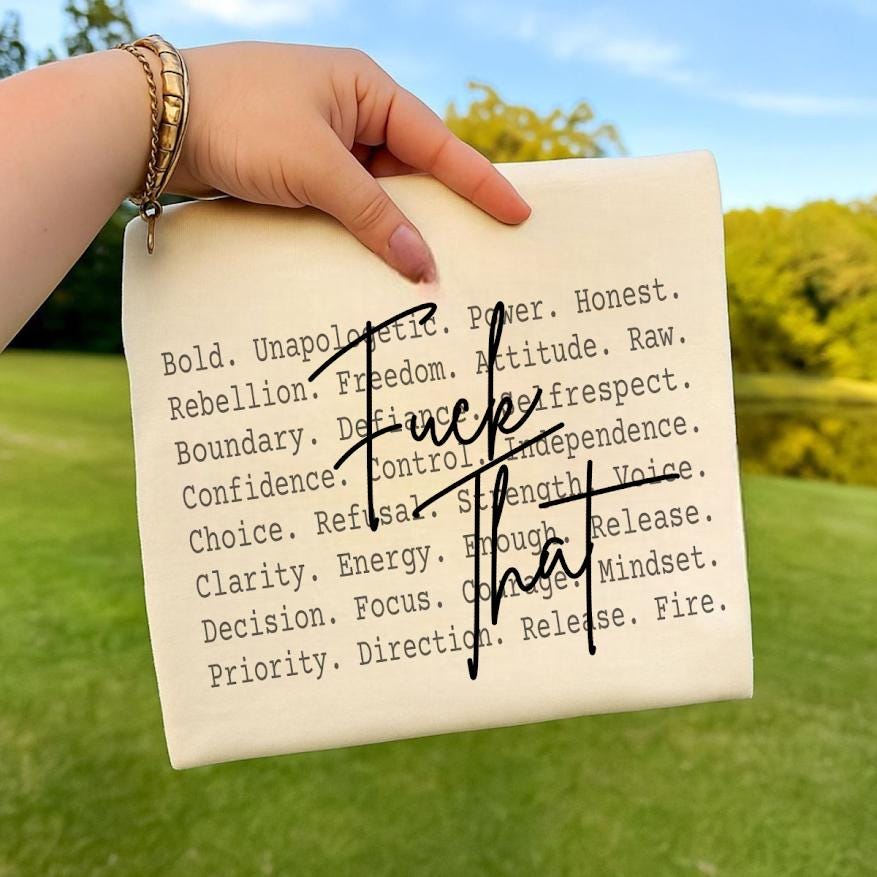 Bold. Unapologetic. Power. Honest.
Rebellion. Freedom. Attitude. Raw.
Boundary. Defiance. Selfrespect.
Confidence. Control. Independence.
Choice. Refusal. Strength. Voice.
Clarity. Energy. Enough. Release.
Decision. Focus. Courage. Mindset.
Priority. Direction. Release. Fire.
Fuck
That